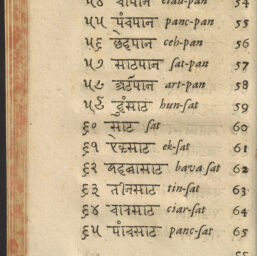 ५४ चौपान ciau-pan 54
५५ पंचपान panc-pan 55
५६ छहपान ceh-pan 56
५७ साटपान ſat-pan 57
५८ अर्टपान art-pan 58
५९ हुंसाट hun-ſat 59
६० साट ſat 60
६१ एकसाट ek-ſat 61
६२ बहवासाट bava ſat 62
६३ तीनसाट tin-ſat 63
६४ चारसाट ciar-ſat 64
६५ पांचसाट panc-ſat 65